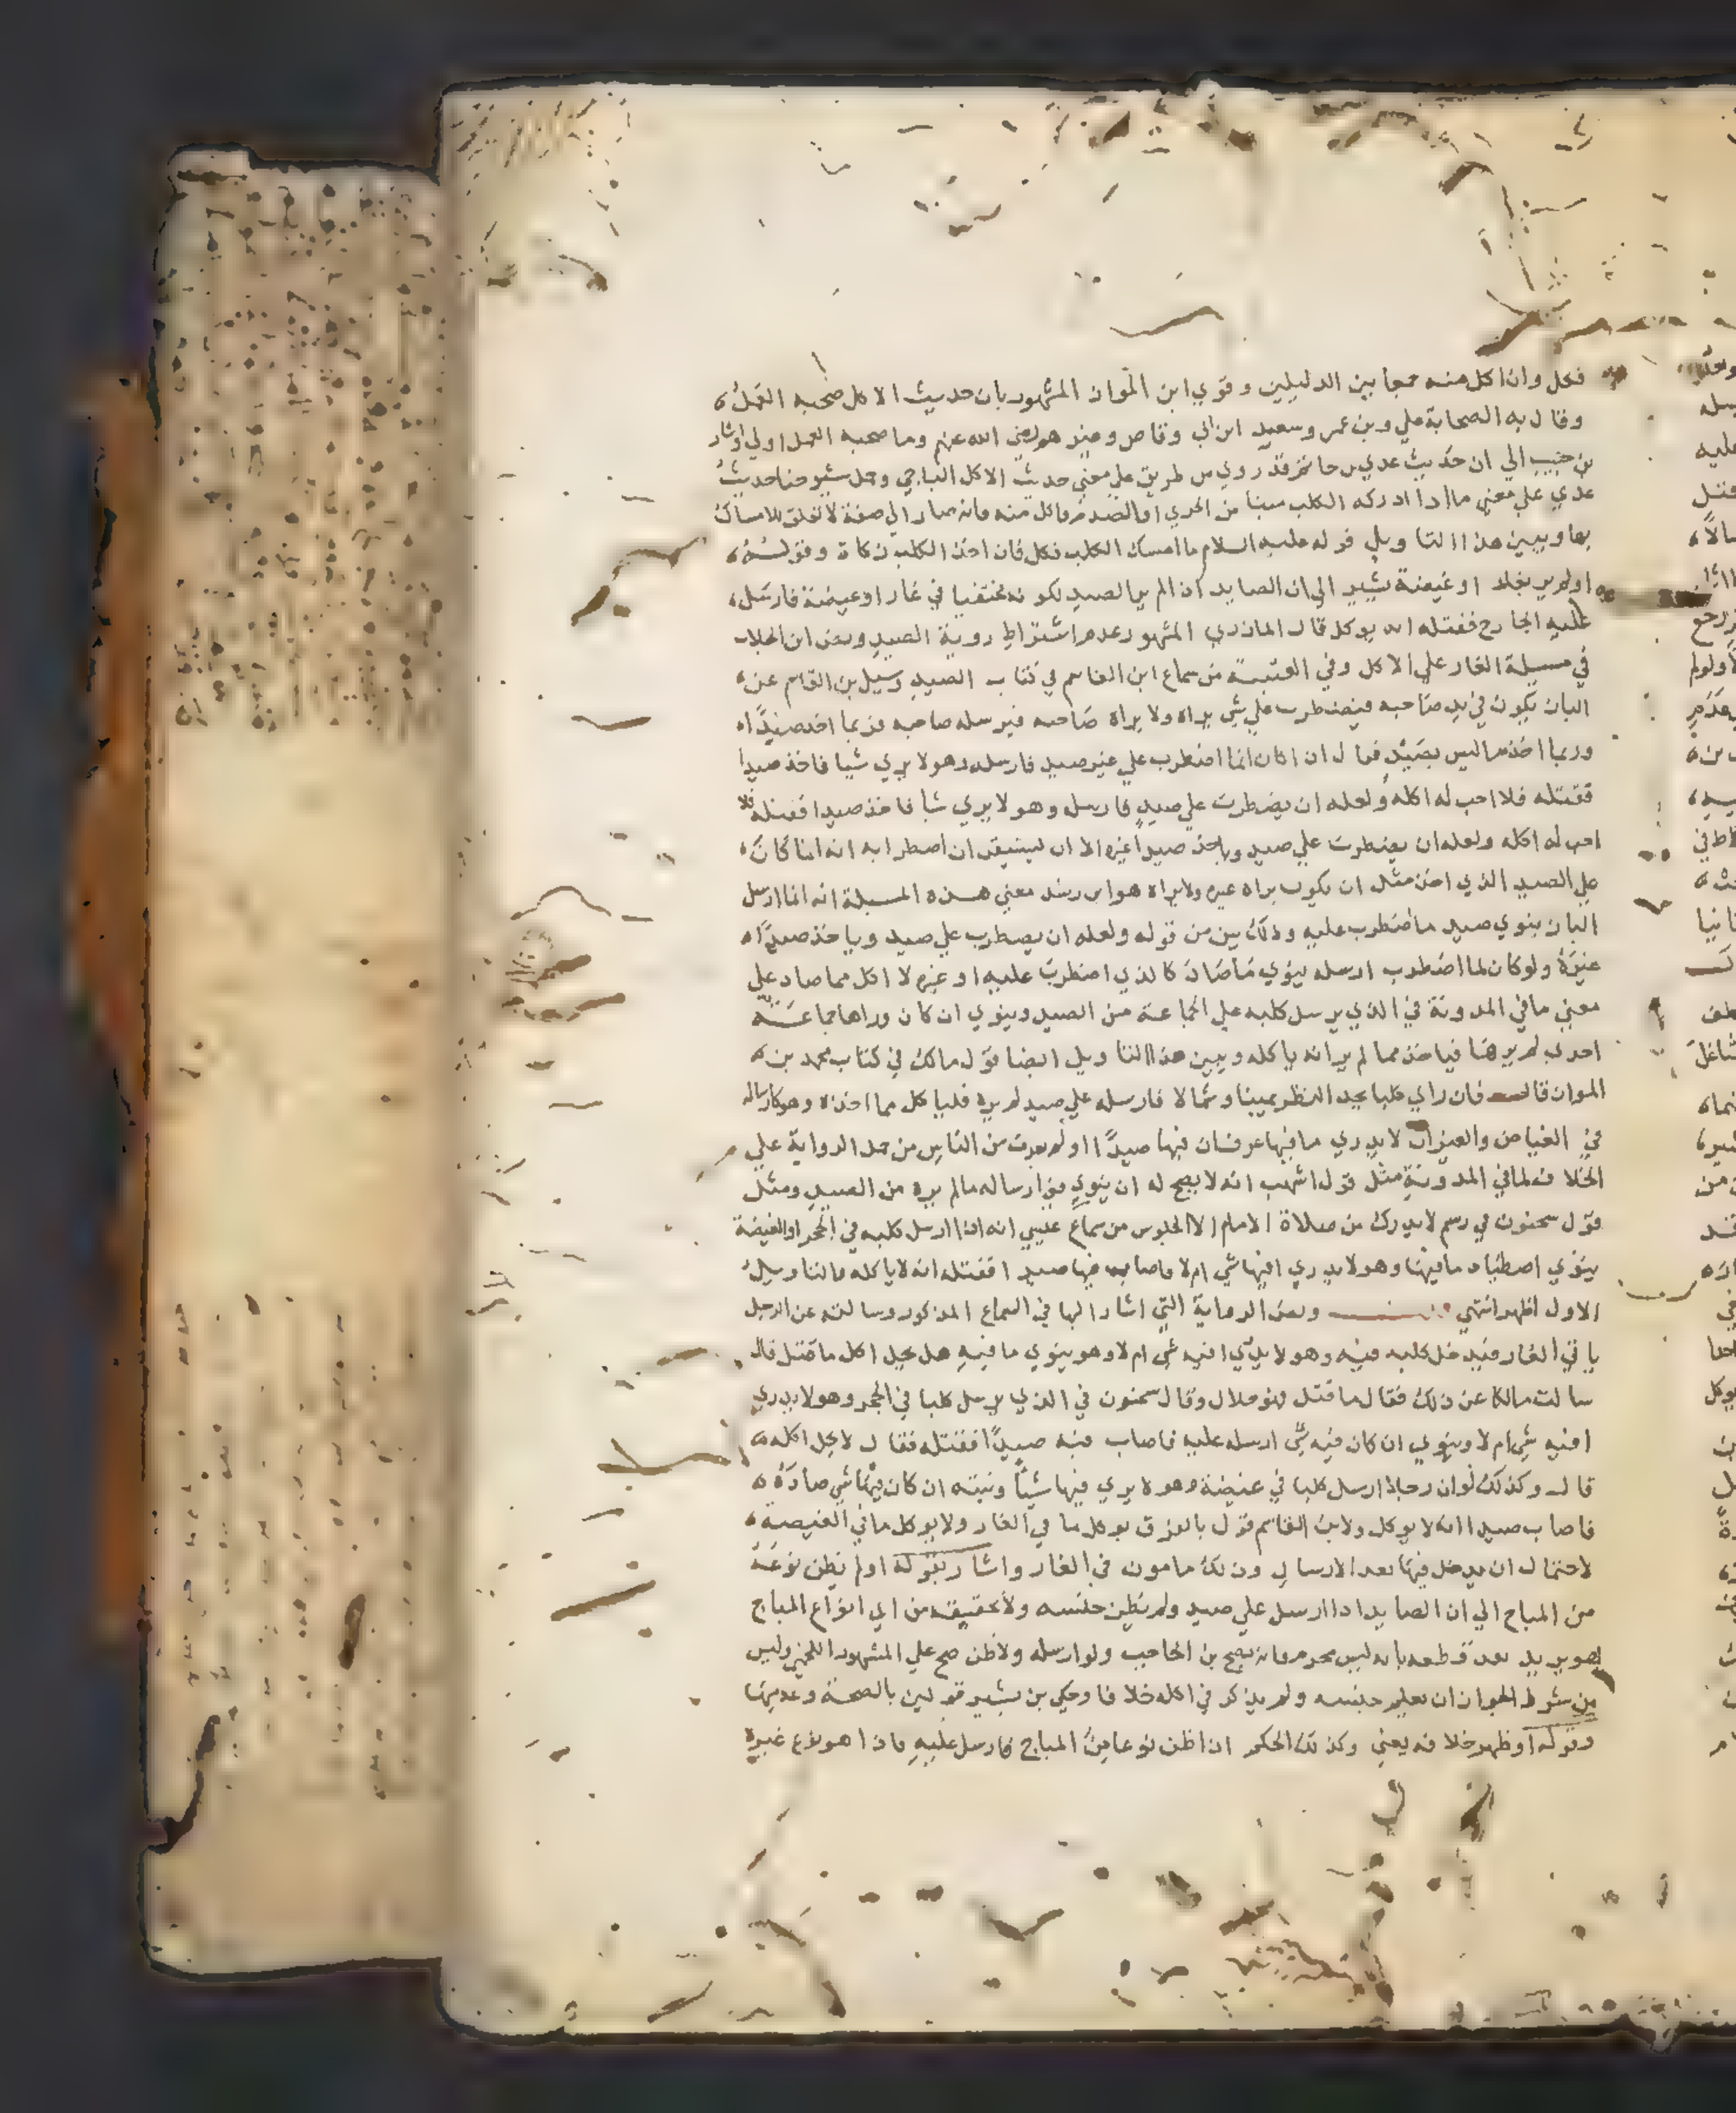 فكل وان اكل منه جمعا بين الدليلين وقوي ابن المواز المشهور بان حديث الاكل صحبه العمل
وقال به الصحابة علي وبن عمر وسعيد ابن ابي وقاص وغيرهم رضي الله عنهم وما صحبه العمل اولي واشار
بن حبيب الي ان حديث عدي بن حاتم قد روي من طريق علي معني حديث الاكل الباجي وحمل شيوخنا حديث
عدي علي معني ما اذا ادركه الكلب ميتا من الجري او الصدم فاكل منه فانه صار الي صفة لا تعلق للامساك
بها ويبين هذا التاويل قوله عليه السلام ما امسك الكلب فكل فان اخذ الكلب ذكاة وقوله
اولم ير بغار او غيضة يشير الي ان الصايد اذا لم ير الصيد لكونه مختفيا في غار او غيضة فارسل
عليه الجارح فقتله انه يوكل قال المازري المشهور عدم اشتراط روية الصيد ونص ابن الجلاب
في مسيلة الغار علي الاكل وفي العتبية من سماع ابن القاسم في كتاب الصيد وسيل بن القاسم عن
الباز يكون في يد صاحبه فيضطرب علي شي يراه ولا يراه صاحبه فيرسله صاحبه فربما اخذ صيدا
وربما اخذ ما ليس بصيد فقال ان كان انما اضطرب علي غير صيد فارسله وهو لا يري شيا فاخذ صيدا
فقتله فلا احب له اكله ولعله ان يضطرب علي صيد فارسل وهو لا يري شيا فاخذ صيدا فقتله فلا
احب له اكله ولعله ان يضطرب علي صيد وياخذ صيدا غيره الا ان يستيقن ان اضطرابه انه انما كان
علي الصيد الذي اخذ مثل ان يكون يراه غيره ولا يراه هو ابن رشد معني هذه المسيلة انه انما ارسل
الباز ينوي صيد ما اضطرب عليه وذلك بين من قوله ولعله ان يضطرب علي صيد وياخذ صيدا
غيره ولو كان لما اضطرب ارسله ينوي ما صاد كالذي اضطرب عليه او غيره لا اكل مما صاد علي
معني ما في المدونة في الذي يرسل كلبه علي الجماعة من الصيد وينوي ان كان وراها جماعة
اخري لم يرها فياخذ مما لم ير انه ياكله ويبين هذا التاويل ايضا قول مالك في كتاب محمد بن
المواز قال فان راي كلبا يحد النظر يمينا وشمالا فارسله علي صيد لم يره فلياكل مما اخذه وهو كارساله
في الغياض والغيران لا يدري ما فيها عرف ان فيها صيدا اولم يعرف من الناس من حمل الرواية علي
الخلاف لما في المدونة مثل قول اشهب انه لا يصح له ان ينوي في ارساله ما لم يره من الصيد ومثل
قول سحنون في رسم لا يدرك من صلاة الامام الا الجلوس من سماع عيسي انه اذا ارسل كلبه في الجحر او الغيضة
ينوي اصطياد ما فيها وهو لا يدري افيها شي ام لا فاصاب فيها صيدا فقتله انه لا ياكله فالتاويل
الاول اظهر انتهي ونص الرواية التي اشار اليها في السماع المذكور وسالته عن الرجل
ياتي الغار فيدخل كلبه فيه وهو لا يدري افيه شي ام لا وهو ينوي ما فيه هل يحل اكل ما قتل قال
سالت مالكا عن ذلك فقال ما قتل فهو حلال وقال سحنون في الذي يرسل كلبا في الجحر وهو لا يدري
افيه شي ام لا وينوي ان كان فيه شي ارسله عليه فاصاب فيه صيدا فقتله فقال لا يحل اكله
قال وكذلك لو ان رجلا ارسل كلبا في غيضة وهو لا يري فيها شيا ونيته ان كان فيها شي صاده
فاصاب صيدا انه لا يوكل ولابن القاسم قول بالفرق يوكل ما في الغار ولا يوكل ما في الغيضة
لاحتمال ان يدخل فيها بعد الارسال وذلك مامون في الغار واشار بقوله اولم يظن نوعه
من المباح الي ان الصايد اذا ارسل علي صيد ولم يظن جنسه ولا تحقيقه من اي انواع المباح
هو يريد بعد قطعه بانه ليس محرم فانه يصح بن الحاجب ولو ارسله ولا ظن صح علي المشهور اللخمي وليس
من شرط الجواز ان يعلم جنسه ولم يذكر في اكله خلافا وحكي بن بشير قولين بالصحة وعدمها
وقوله او ظهر خلافه يعني وكذلك الحكم اذا ظن نوعا من المباح فارسل عليه فاذا هو نوع غيره